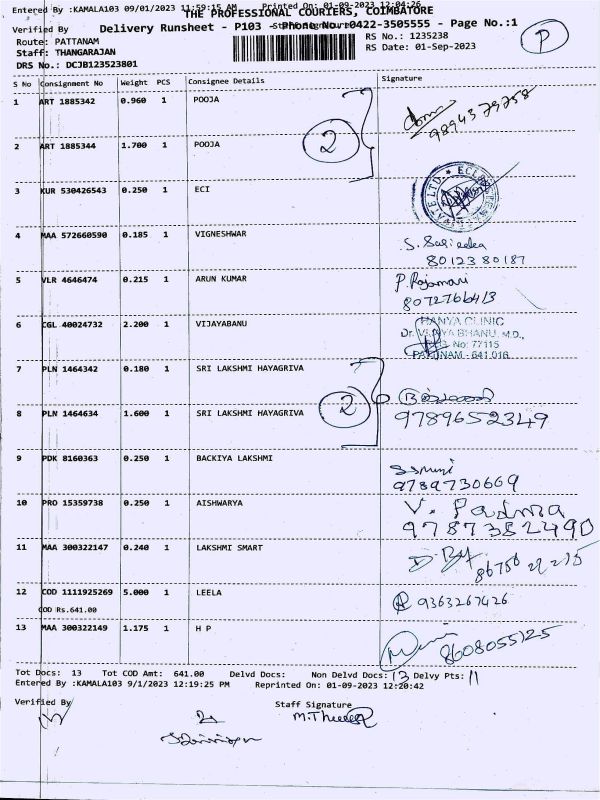 Entered By :KAMALA103 09/01/2023 11:59:15 AM Printed On: 01-09-2023 12:04:26
THE PROFESSIONAL COURIERS, COIMBATORE
Verified By
Delivery Runsheet - P103 - Phone No.:0422-3505555 - Page No.:1
P
Route: PATTANAM
RS No.: 1235238
Staff: THANGARAJAN
RS Date: 01-Sep-2023
DRS No.: DCJB123523801
S No Consignment No Weight PCS Consignee Details Signature
1 ART 1885342 0.960 1 POOJA
9894379758
2
2 ART 1885344 1.700 1 POOJA
3 KUR 530426543 0.250 1 ECI
4 MAA 572660590 0.185 1 VIGNESHWAR
80123 80187
5 VLR 4646474 0.215 1 ARUN KUMAR
P. Rajamari
8072766413
6 CGL 40024732 2.200 1 VIJAYABANU
CLINIC
Dr. BHANU, M.D.,
No: 77115
PATTINAM - 641 016
7 PLN 1464342 0.180 1 SRI LAKSHMI HAYAGRIVA
2
8 PLN 1464634 1.600 1 SRI LAKSHMI HAYAGRIVA
9789652349
9 PDK 8160363 0.250 1 BACKIYA LAKSHMI
9789730669
10 PRO 15359738 0.250 1 AISHWARYA
V. Padma
9787382490
11 MAA 300322147 0.240 1 LAKSHMI SMART
12 COD 1111925269 5.000 1 LEELA
9363267426
COD Rs.641.00
13 MAA 300322149 1.175 1 H P
8608055125
Tot Docs: 13 Tot COD Amt: 641.00 Delvd Docs: Non Delvd Docs: 13 Delvy Pts: 11
Entered By :KAMALA103 9/1/2023 12:19:25 PM Reprinted On: 01-09-2023 12:20:42
Verified By
Staff Signature